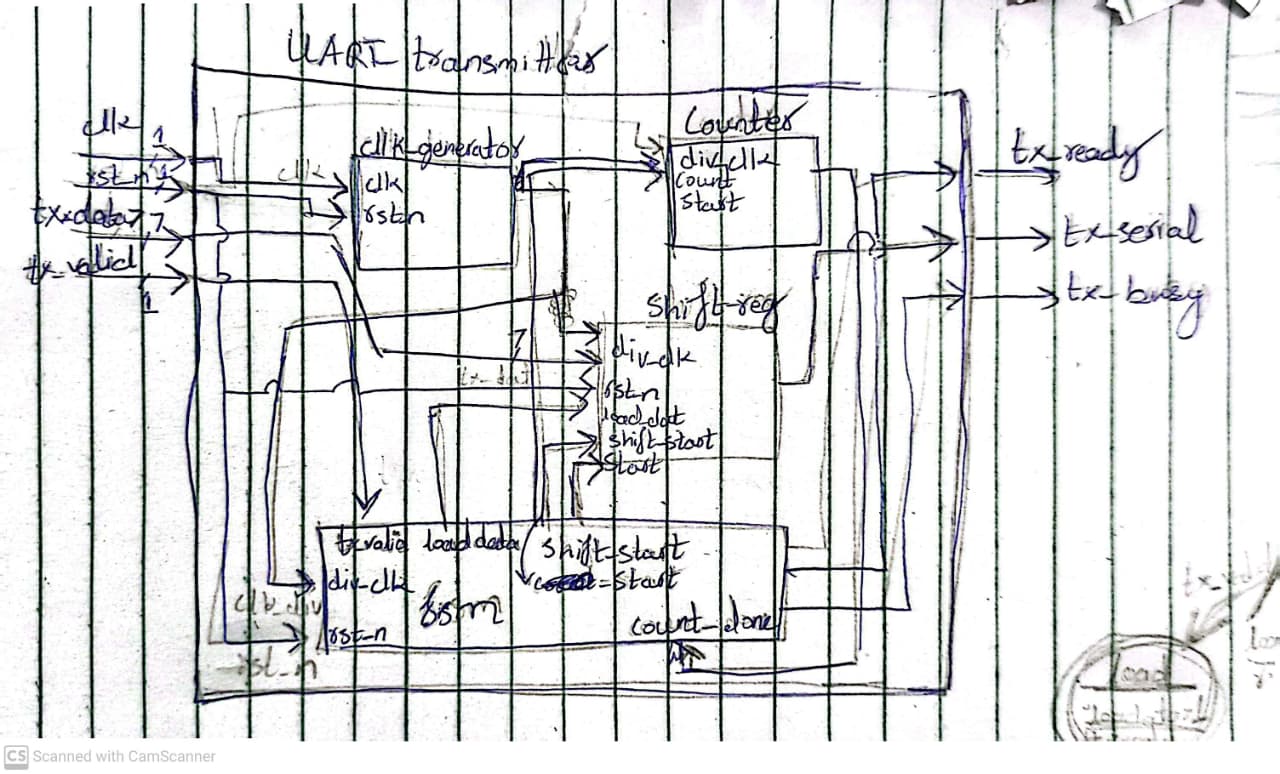 UART transmitter
clk 1
rst_n 1
tx_data 7
tx_valid
1
clk
clk_generator
clk
rst_n
Counter
div_clk
count
start
tx_ready
tx_serial
tx_busy
shift_reg
7
div_clk
rst_n
load_dat
shift_start
start
tx_valid load data shift_start
div_clk
start
clk_div
fsm
rst_n
count_done
rst_n
load
CS Scanned with CamScanner